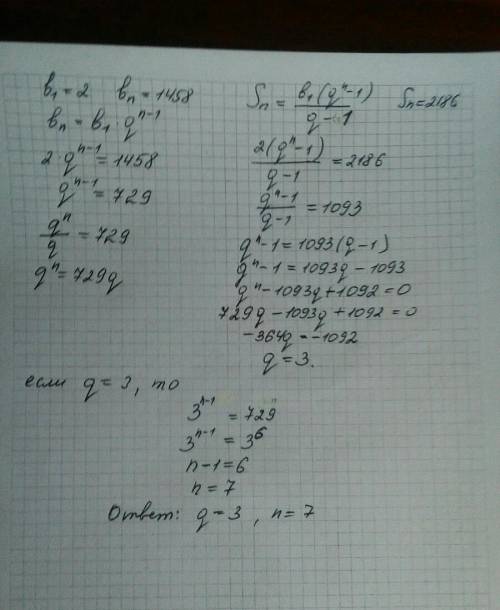 b₁ = 2   bₙ = 1458
bₙ = b₁ · qⁿ⁻¹
2 · qⁿ⁻¹ = 1458
qⁿ⁻¹ = 729
qⁿ/q = 729
qⁿ = 729q
Sₙ = b₁(qⁿ-1)/q-1   Sₙ = 2186
2(qⁿ-1)/q-1 = 2186
qⁿ-1/q-1 = 1093
qⁿ-1 = 1093(q-1)
qⁿ-1 = 1093q - 1093
qⁿ - 1093q + 1092 = 0
729q - 1093q + 1092 = 0
-364q = -1092
q = 3.
если q = 3, то
3ⁿ⁻¹ = 729
3ⁿ⁻¹ = 3⁶
n-1 = 6
n = 7
Ответ: q = 3, n = 7